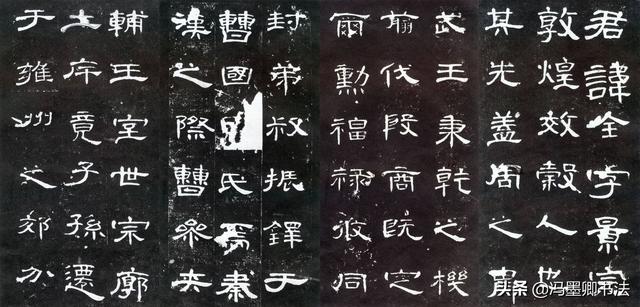 君諱全字景完
敦煌效穀人也
其先蓋周之胄
武王秉乾之機
翦伐殷商既定
爾勳福祿攸同
封弟叔振鐸于
曹國因氏焉秦
漢之際曹參夾
輔王室世宗廓
土斥竟子孫遷
于雍州之郊分
头条 @冯墨卿书法